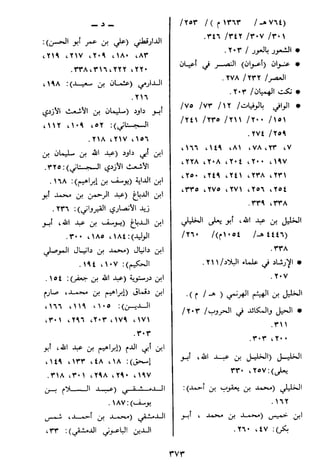 - د -
٧٦٤ هـ / ١٣٦٣ م) / ٢٥٣/
٣٠١/ ٣٠٧/ ٣٤٢/ ٣٤٦.
* الشعور بالعور / ٢٠٣.
* عنوان (أعوان) النصر في أعيان
العصر/ ٢٣٢/ ٢٧٨.
* نكت الهميان/ ٢٠٣.
* الوافي بالوفيات/ ١٢/ ٧٣/ ٧٥/
١٥١/ ٢٠٠/ ٢١١/ ٢٣٥/ ٢٤١/
٢٥٩/ ٢٧٤.
٧، ٢٣، ٧٨، ٨١، ١٤٩، ١٦٦،
١٩٧، ٢٠٠، ٢٠٤، ٢٠٨، ٢٢٨،
٢٣١، ٢٣٨، ٢٤١، ٢٤٩، ٢٥٠،
٢٥٤، ٢٥٦، ٢٧١، ٢٧٥، ٣٣٥،
٣٣٨، ٣٣٩.
الخليل بن عبد الله، أبو يعلى الخليلي
(٤٤٦ هـ/ ١٠٥٤م) / ٢٦٠/
٣٣٨.
* الإرشاد في علماء البلاد/ ٢١١/
٢٠٧.
الخليل بن الهيثم الهرثمي ( هـ / م ).
* الحيل والمكائد في الحروب/ ٢٠٣/
٣١١.
٢٠٠، ٣٠٣.
الخليل (الخليل بن عبد الله، أبو
يعلى): ٢٥٧، ٣٣٠.
الخليلي (محمد بن يعقوب بن أحمد):
١٦٢.
ابن خميس (محمد بن محمد ، أبو
بكر): ٤٧، ٢٦٠.
الدارقطني (علي بن عمر أبو الحسن):
٨٣، ١٨٠، ٢٠٩، ٢١٧، ٢١٩،
٢٢٠، ٢٢٢، ٣١٦، ٣٣٨.
الدارمي (عثمان بن سعيد): ١٩٨،
٢١٦.
أبو داود (سليمان بن الأشعث الأزدي
السجستاني): ٥٢، ١٠٩، ١١٢،
١٥٦، ٢١٧، ٢١٨.
ابن أبي داود (عبد الله بن سليمان بن
الأشعث الأزدي السجستاني): ٣٢٥.
ابن الداية (يوسف بن إبراهيم): ١٦٨.
ابن الدباغ (عبد الرحمن بن محمد أبو
زيد الأنصاري القيرواني): ٢٣٦.
ابن الدباغ (يوسف بن عبد الله، أبو
الوليد): ١٨٤، ١٨٥، ٣٠٠.
ابن دانيال (محمد بن دانيال الموصلي
الحكيم): ١٠٧، ١٩٤.
ابن درستوية (عبد الله بن جعفر): ١٥٤.
ابن دقماق (إبراهيم بن محمد، صارم
الدين): ١٠٥، ١١٩، ١٦٦،
١٧١، ١٧٩، ٢٠٣، ٢٩٦، ٣٠١،
٣٠٣.
ابن أبي الدم (إبراهيم بن عبد الله، أبو
إسحق): ١٨، ٤٨، ١٣٣، ١٤٩،
١٩٧، ٢٩٠، ٢٩٨، ٣٠١، ٣١٨.
الدمشقي (عبد السلام بن
يوسف): ١٨٧.
الدمشقي (محمد بن أحمد، شمس
الدين الباعوني الدمشقي): ٣٣،
٣٧٣